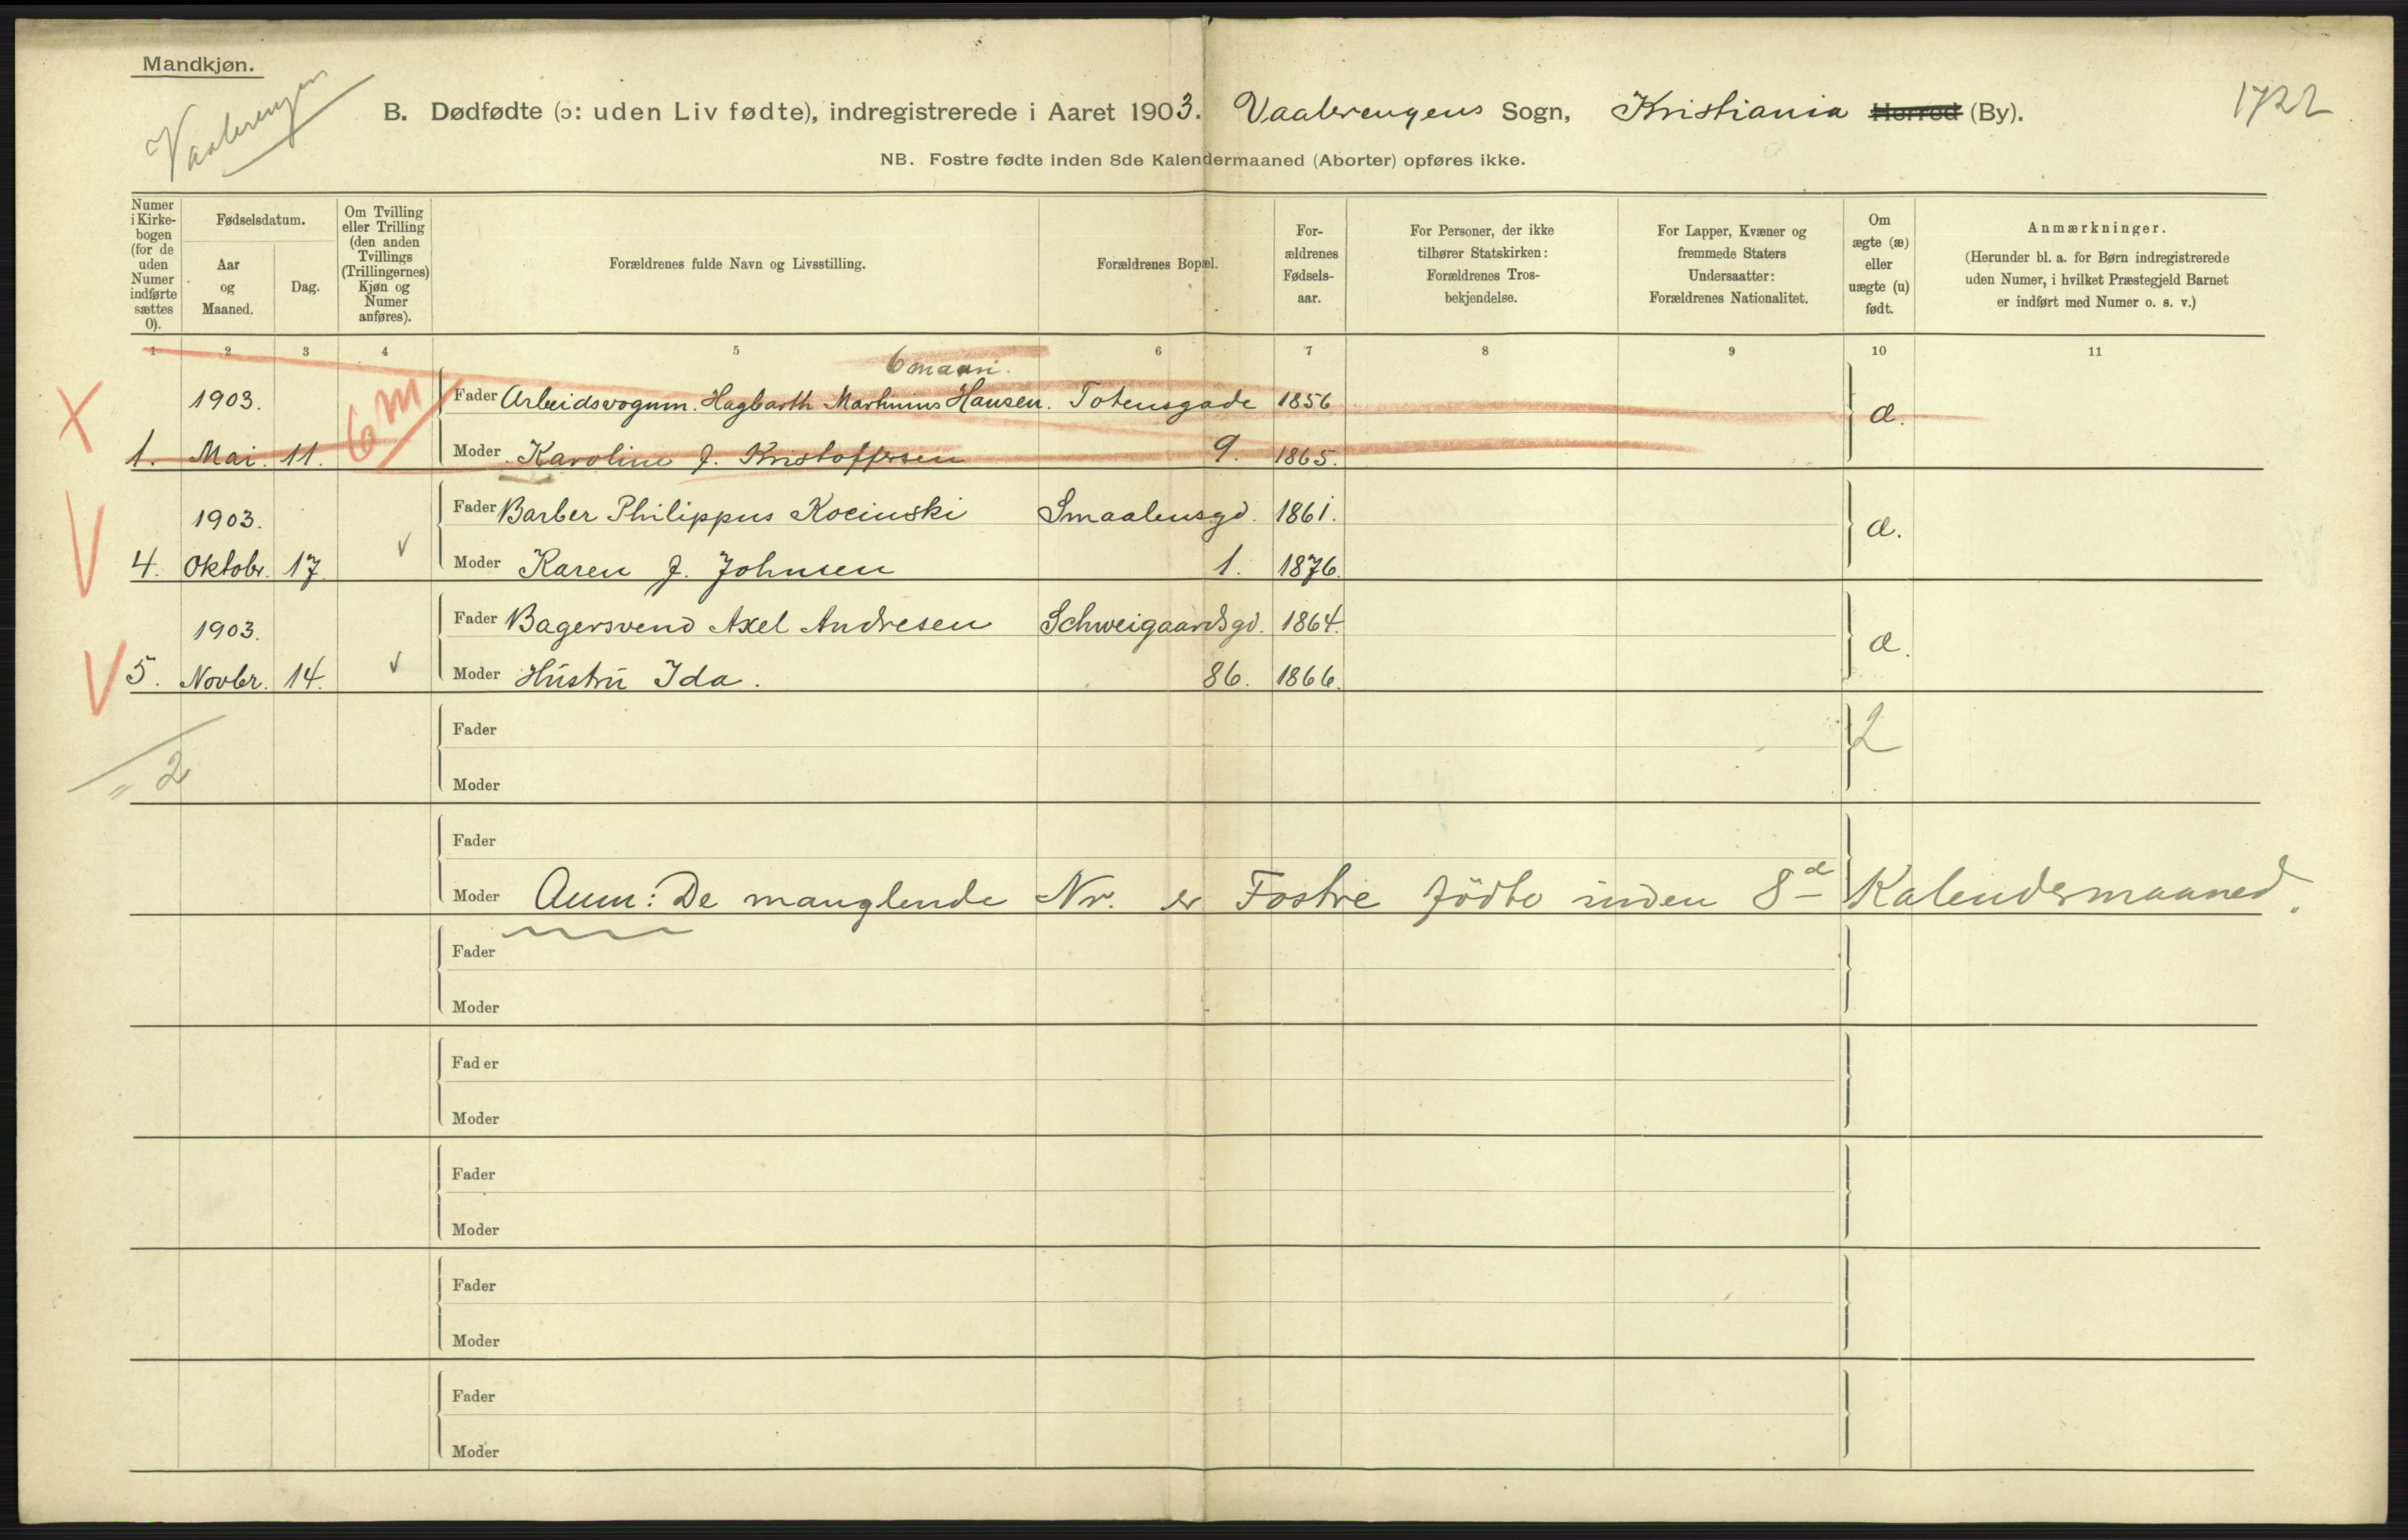 Mandkjøn.
Vaalerengen
B. Dødfødte (ɔ: uden Liv fødte), indregistrerede i Aaret 1903. Vaalerengens Sogn, Kristiania Herred (By).
1722
NB. Fostre fødte inden 8de Kalendermaaned (Aborter) opføres ikke.
Numer i Kirke-bogen (for de uden Numer indførte sættes 0).
Fødselsdatum.
Aar og Maaned.
Dag.
Om Tvilling eller Trilling (den anden Tvillings (Trillingernes) Kjøn og Numer anføres).
Forældrenes fulde Navn og Livsstilling.
Forældrenes Bopæl.
For-ældrenes Fødsels-aar.
For Personer, der ikke tilhører Statskirken: Forældrenes Tros-bekjendelse.
For Lapper, Kvæner og fremmede Staters Undersaatter: Forældrenes Nationalitet.
Om ægte (æ) eller uægte (u) født.
Anmærkninger.
(Herunder bl. a. for Børn indregistrerede uden Numer, i hvilket Præstegjeld Barnet er indført med Numer o. s. v.)
1 2 3 4 5 6 7 8 9 10 11
6 maan.
1903. 6 m Fader Arbeidsvognm. Hagbarth Marthinius Hansen. Totensgade 1856 æ.
1. Mai. 11. Moder Karoline J. Kristoffersen 9. 1865.
1903. Fader Barber Philippus Kocinski Smaalensgd. 1861. æ.
4. Oktobr. 17. Moder Karen J. Johnsen 1. 1876.
1903. Fader Bagersvend Axel Andresen Schweigaardsgd. 1864. æ.
5. Novbr. 14. Moder Hustru Ida. 86. 1866.
Fader 2
= 2 Moder
Fader
Moder Anm: De manglende Nr. er Fostre fødte inden 8de Kalendermaaned.
Fader
Moder
Fader
Moder
Fader
Moder
Fader
Moder
Fader
Moder